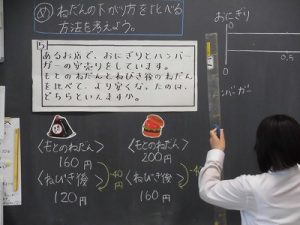 め ねだんの下がり方をくらべる
方法を考えよう。
5
あるお店で、おにぎりとハンバー
ガーの安売りをしています。
もとのねだんとねびき後のねだん
を比べて、より安くなったのは、
どちらといえますか。
〈もとのねだん〉
160円
〈ねびき後〉
120円
-40円
〈もとのねだん〉
200円
〈ねびき後〉
160円
-40円
おにぎり
0
0
0.5
バーガー